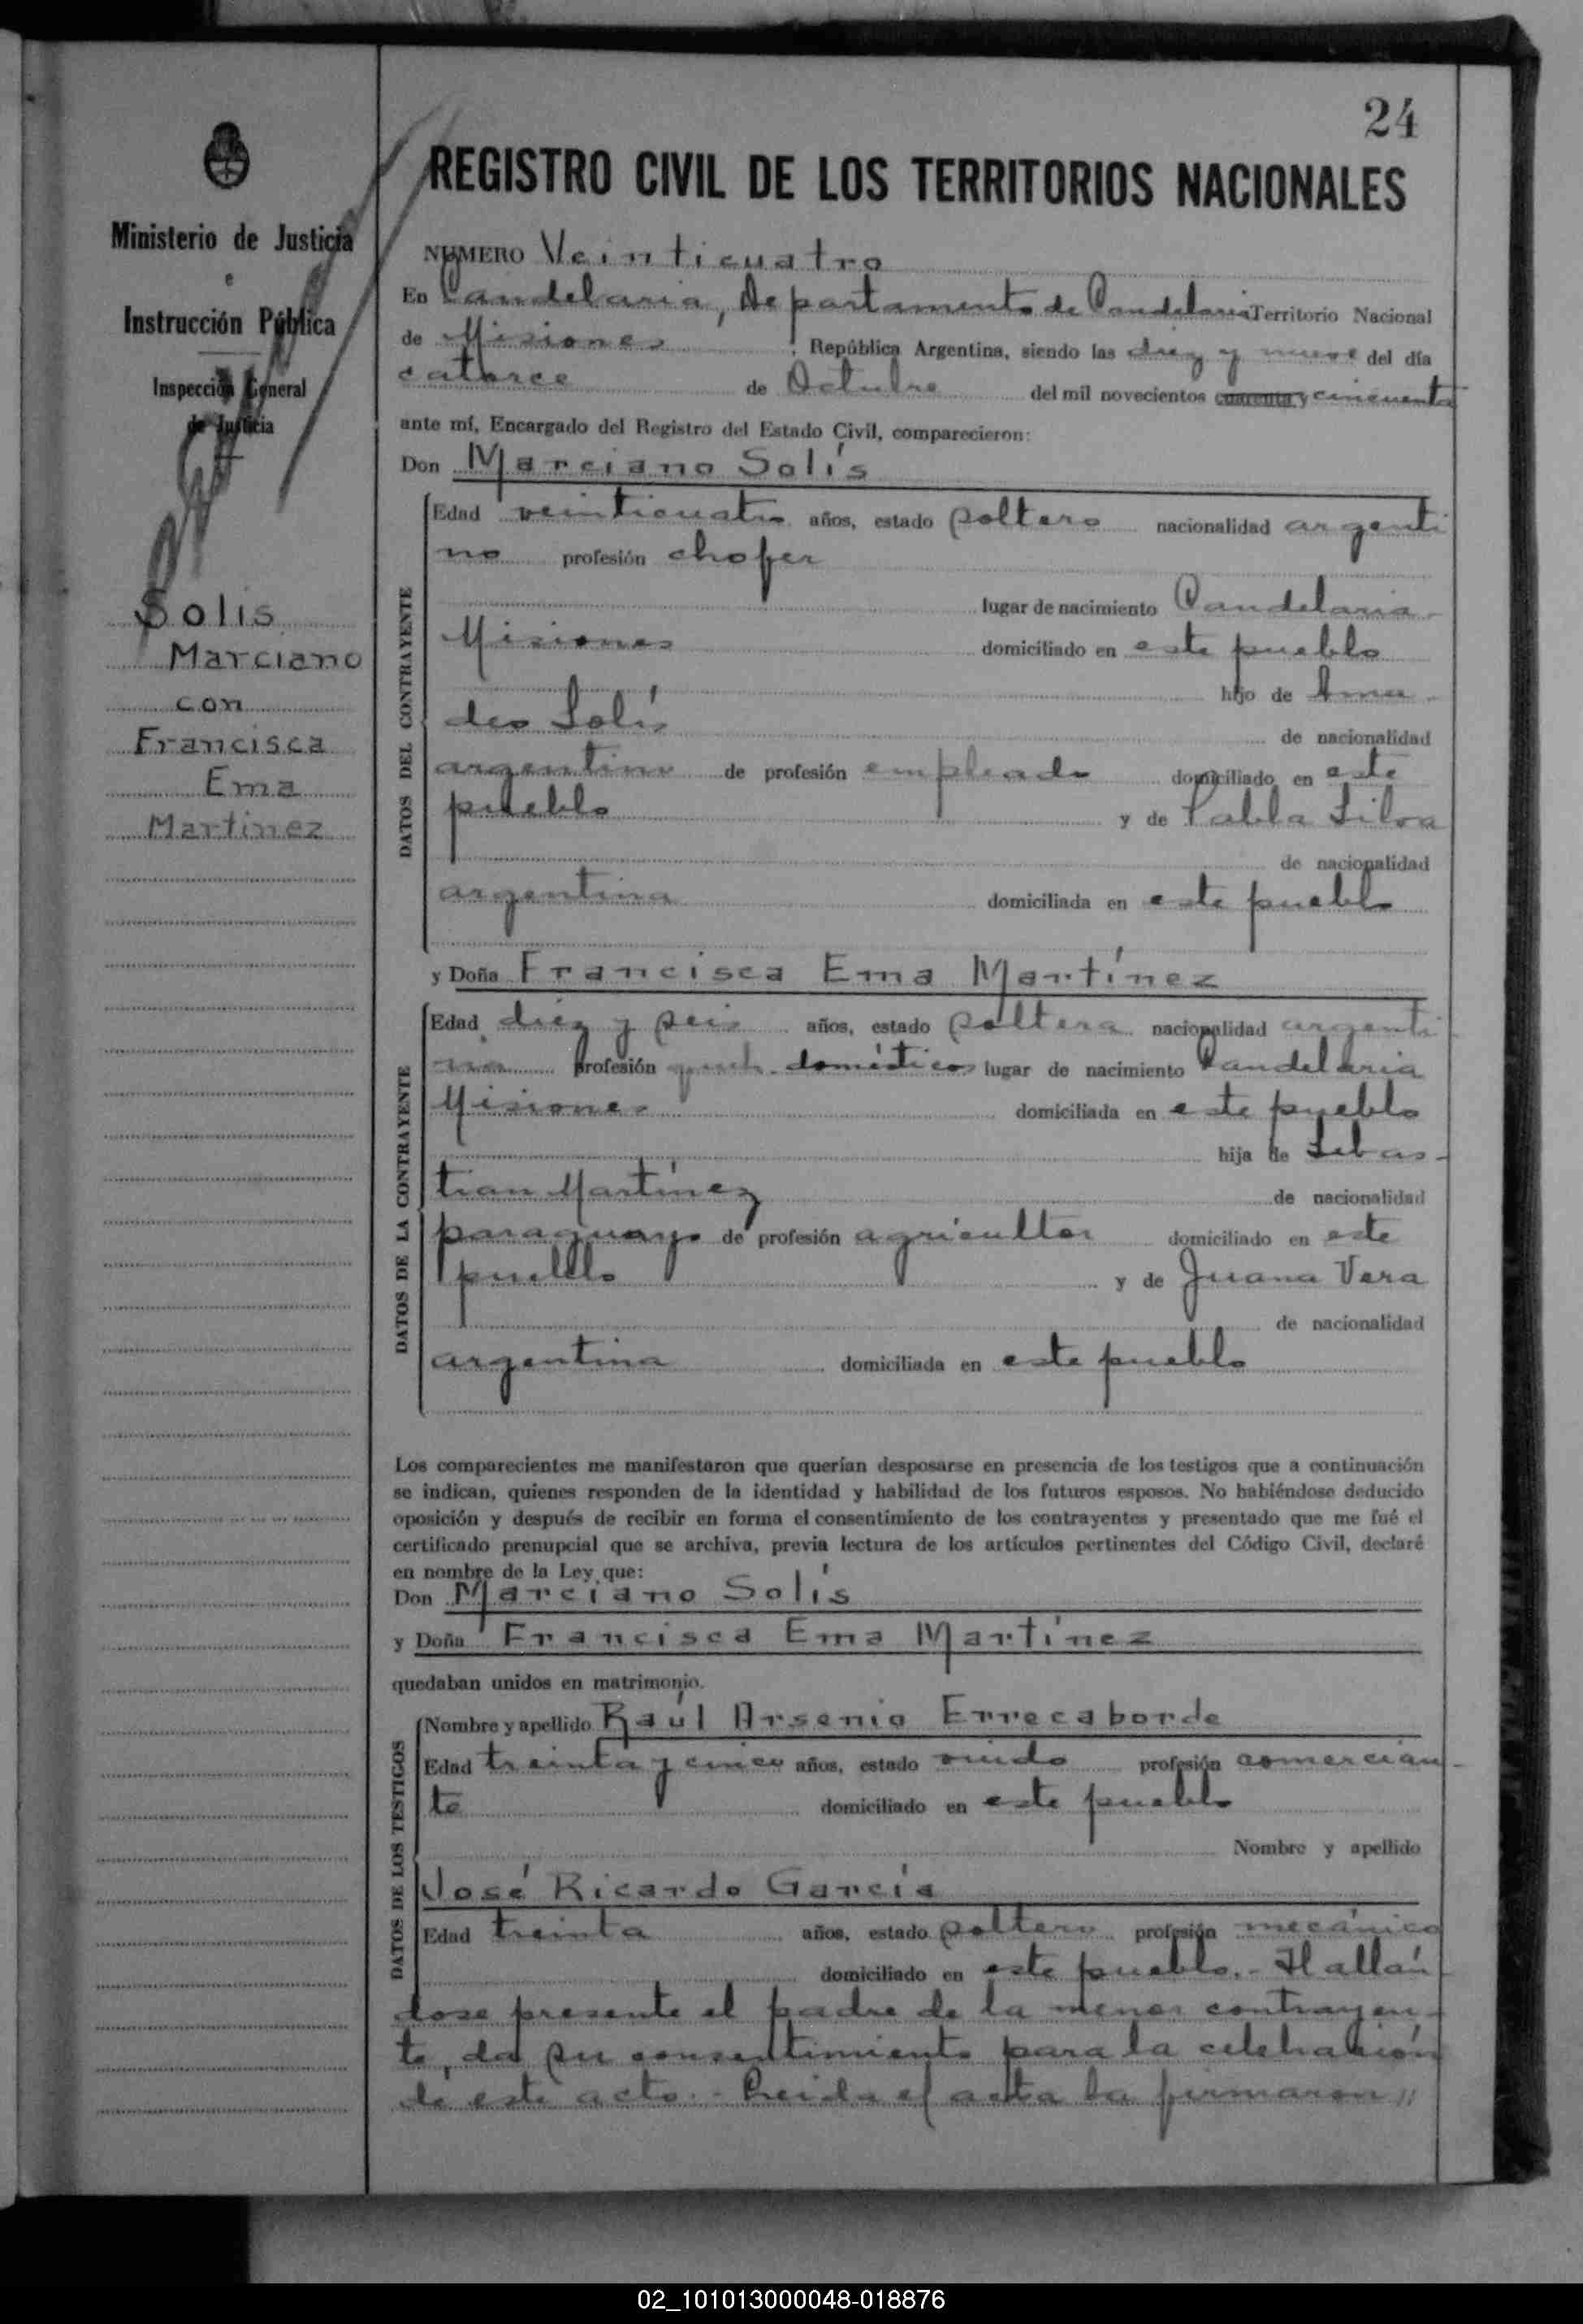 24
REGISTRO CIVIL DE LOS TERRITORIOS NACIONALES
Ministerio de Justicia
e
Instrucción Pública
Inspección General
de Justicia
Solis
Marciano
con
Francisca
Ema
Martinez
NUMERO Veinticuatro
En Candelaria, Departamento de Candelaria Territorio Nacional
de Misiones, República Argentina, siendo las diez y nueve del día
catorce de Octubre del mil novecientos cuarenta y cincuenta
ante mí, Encargado del Registro del Estado Civil, comparecieron:
Don Marciano Solís
DATOS DEL CONTRAYENTE
Edad veinticuatro años, estado soltero nacionalidad argenti
no profesión chofer
lugar de nacimiento Candelaria
Misiones domiciliado en este pueblo
hijo de Ama
deo Solís de nacionalidad
argentino de profesión empleado domiciliado en este
pueblo y de Pabla Silva
de nacionalidad
argentina domiciliada en este pueblo
y Doña Francisca Ema Martínez
DATOS DE LA CONTRAYENTE
Edad diez y seis años, estado soltera nacionalidad argenti
na profesión domésticos lugar de nacimiento Candelaria
Misiones domiciliada en este pueblo
hija de Sebas-
tian Martínez de nacionalidad
paraguayo de profesión agricultor domiciliado en este
pueblo y de Juana Vera
de nacionalidad
argentina domiciliada en este pueblo
Los comparecientes me manifestaron que querían desposarse en presencia de los testigos que a continuación
se indican, quienes responden de la identidad y habilidad de los futuros esposos. No habiéndose deducido
oposición y después de recibir en forma el consentimiento de los contrayentes y presentado que me fué el
certificado prenupcial que se archiva, previa lectura de los artículos pertinentes del Código Civil, declaré
en nombre de la Ley que:
Don Marciano Solís
y Doña Francisca Ema Martínez
quedaban unidos en matrimonio.
DATOS DE LOS TESTIGOS
Nombre y apellido Raúl Arsenio Errecaborde
Edad treinta y cinco años, estado viudo profesión comercian-
te domiciliado en este pueblo
Nombre y apellido
José Ricardo García
Edad treinta años, estado soltero profesión mecánico
domiciliado en este pueblo.- Hallán
dose presente el padre de la menor contrayen-
te, da su consentimiento para la celebración
de este acto.- Leida el acta la firmaron //
02_101013000048-018876